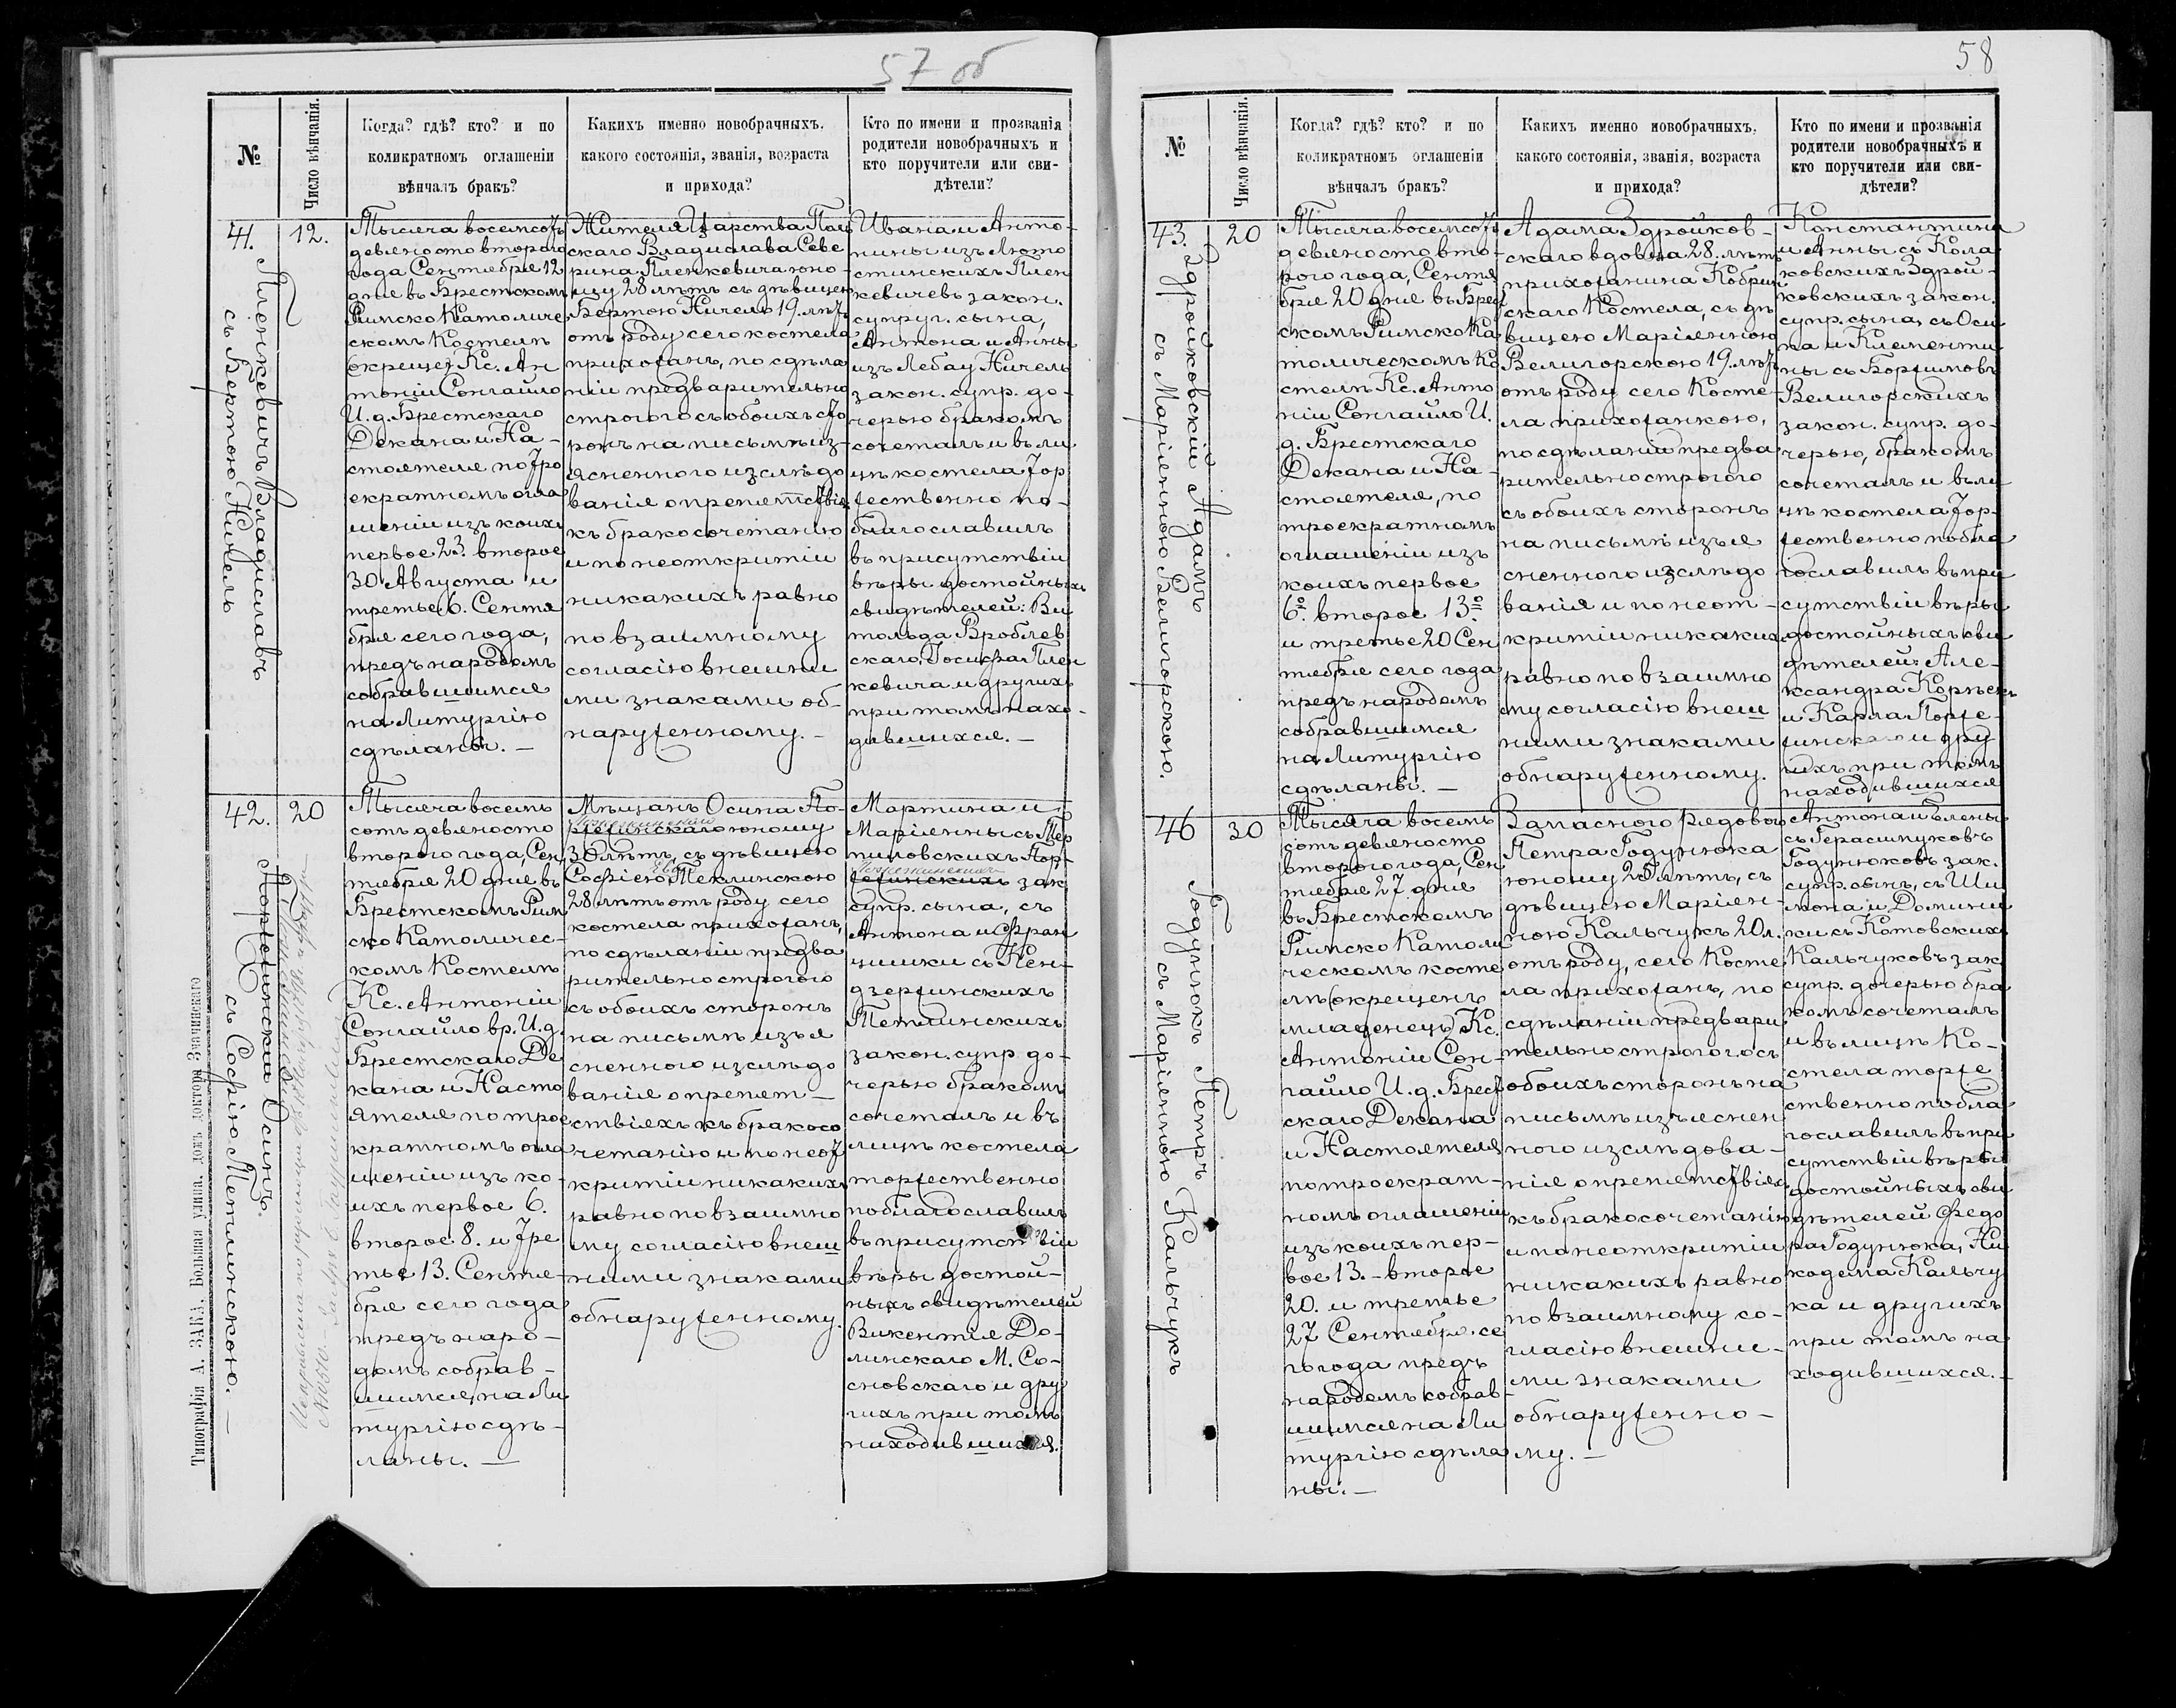 57 об
№
Число вѣнчанія.
Когда? гдѣ? кто? и по
коликратномъ оглашеніи
вѣнчалъ бракъ?
Какихъ именно новобрачныхъ,
какого состоянія, званія, возраста
и прихода?
Кто по имени и прозванія
родители новобрачныхъ и
кто поручители или сви-
дѣтели?
41.
Пленкевичъ Владиславъ
съ Бертою Ничель
12.
Тысяча восемсотъ
девяносто второго
года Сентября 12
дня въ Брестскомъ
Римско Католиче
скомъ Костелѣ
Кс. Ан
тоній Сонгайло
И. д. Брестскаго
Декана и На-
стоятеля по тро
екратномъ огла
шеніи изъ коихъ
первое 23. второе
30 Августа и
третье 6. Сентя
бря сего года,
предъ народомъ
собравшимся
на Литургію
сдѣланы. —
Жителя Царства Поль
скаго Владислава Севе
рина Пленкевича юно-
шу 28 лѣтъ съ дѣвицею
Бертою Ничель 19. лѣтъ
отъ роду сего костела
прихожанъ, по сдѣла
ніи предварительно
строгого съ обоихъ сто
ронъ на письмѣ из-
ясненного изслѣдо
ванія о препятствіях
къ бракосочетанію
и по неоткритіи
никакихъ равно
по взаимному
согласію внешни
ми знаками об-
наруженному. —
Ивана и Анто-
нины изъ Люто
стинскихъ Плен
кевичевъ закон.
супруг. сына,
Антона и Анны
изъ Лебау Ничель
закон. супр. до-
черью бракомъ
сочеталъ и въ ли
цѣ костела тор
жественно по-
благославилъ
въ присутствіи
вѣры достойныхъ
свидѣтелей: Ви
тольда Вроблев
скаго, Іосифа Плен
кевича и другихъ
при томъ нахо-
дившихся. —
42.
Поржезинскій Осипъ.
съ Софією Метлинскою. —
20
Тысяча восемь
сотъ девяносто
второго года, Сен
тября 20 дня въ
Брестскомъ Рим
ско Католичес-
комъ Костелѣ
Кс. Антоній
Сонгайло вр. И. д.
Брестскаго Де
кана и Насто
ятеля по трое
кратномъ огла
шеніи изъ ко-
ихъ первое 6.
второе 8. и тре
тье 13. Сентя-
бря сего года
предъ наро-
домъ собрав-
шимся, на Ли
тургію сдѣ-
ланы. —
Мѣщанъ Осипа По-
ржезинскаго юношу
30 лѣтъ, съ дѣвицею
Софією Метлинскою
28 лѣтъ отъ роду сего
костела прихожанъ,
по сдѣланіи предва
рительно строгого
съ обоихъ сторонъ
на письмѣ изъя
сненного изслѣдо
ванія о препят—
ствіяхъ къ бракосо
четанію и по неот
критіи никакихъ
равно по взаимно
му согласію внеш
ними знаками
обнаруженному.
Мартина и
Маріянны съ Мер
пиловскихъ Пор-
жезинскихъ зак
супр. сына, съ
Антона и Фран
цишки съ Кен-
дзержинскихъ
Метлинскихъ
закон. супр. до-
черью бракомъ
сочеталъ и въ
лицѣ костела
торжественно
поблагославилъ
въ присутствіи
вѣры достой-
ныхъ свидѣтелей
Викентія До-
линскаго М. Со-
сновскаго и дру
гихъ при томъ
находившихся.
Типографія А. ЗАКА, Большая улица, домъ доктора Значинскаго
58
№
Число вѣнчанія.
Когда? гдѣ? кто? и по
коликратномъ оглашеніи
вѣнчалъ бракъ?
Какихъ именно новобрачныхъ,
какого состоянія, званія, возраста
и прихода?
Кто по имени и прозванія
родители новобрачныхъ и
кто поручители или сви-
дѣтели?
43.
Здройковскій Адамъ
съ Маріянною Велигорскою.
20
Тысяча восемсотъ
девяносто вто-
рого года, Сентя
бря 20 дня въ Брест
скомъ Римско Ка
толическомъ Ко
стелѣ Кс. Анто
ній Сонгайло И.
д. Брестскаго
Декана и На-
стоятеля, по
троекратномъ
оглашеніи изъ
коихъ первое
6о. второе 13о
и третье 20 Сен
тября сего года
предъ народомъ
собравшимся
на Литургію
сдѣланы. —
Адама Здройков-
скаго вдовца 28. лѣтъ
прихожанина Кобрин
скаго Костела, съ дѣ
вицею Маріянною
Велигорскою 19. лѣтъ
отъ роду сего Косте-
ла прихожанкою,
по сдѣланіи предва
рительно строгого
съ обоихъ сторонъ
на письмѣ изъя
сненного изслѣдо
ванія и по неот-
критіи никаких
равно по взаимно
му согласію внеш
ними знаками
обнаруженному.
Константина
и Анны съ Кола
ковскихъ Здрой-
ковскихъ закон.
супр. сына, съ Оси
па и Клементи
ны съ Бортимовъ
Велигорскихъ
закон. супр. до-
черью, бракомъ
сочеталъ и въ ли
цѣ костела тор-
жественно побла
гославилъ въ при
сутствіи вѣры
достойныхъ сви
дѣтелей: Але-
ксандра
и Карла Порже-
зинскаго и дру
гихъ при томъ
находившихся
46
Годунюкъ Петръ
съ Маріянною Кальчукъ
30
Тысяча восемь
сотъ девяносто
второго года, Сен
тября 27 дня
въ Брестскомъ
Римско Католи
ческомъ косте
лѣ (окрещенъ
младенецъ) Кс.
Антоній Сон-
гайло И. д. Брест
скаго Декана
и Настоятеля
по троекрат-
номъ оглашеніи
изъ коихъ пер-
вое 13. — второе
20. и третье
27 Сентября се
го года предъ
народомъ собрав-
шимся на Ли
тургію сдѣла
ны. —
Запасного рядового
Петра Годунюка
юношу 25 лѣтъ, съ
дѣвицею Маріян-
ною Кальчукъ 20 л.
отъ роду, сего Косте
ла прихожанъ, по
сдѣланіи предвари
тельно строгого съ
обоихъ сторонъ на
письмѣ изъяснен
ного изслѣдова-
нія о препятствіях
къ бракосочетанію
и по неоткритіи
никакихъ равно
по взаимному со-
гласію внешни-
ми знаками
обнаруженно-
му. —
Антона и Елены
съ Герасимуковъ
Годунюковъ зак.
супр. сынъ, съ Ши
мона и Домини
ки съ Котовских
Кальчуковъ зак
супр. дочерью бра
комъ сочеталъ
и въ лицѣ Ко-
стела торже
ственно побла
гославилъ въ при
сутствіи вѣры
достойныхъ сви
дѣтелей Федо
ра Годунюка, Ни
кодема Кальчу
ка и другихъ
при томъ на
ходившихся. —